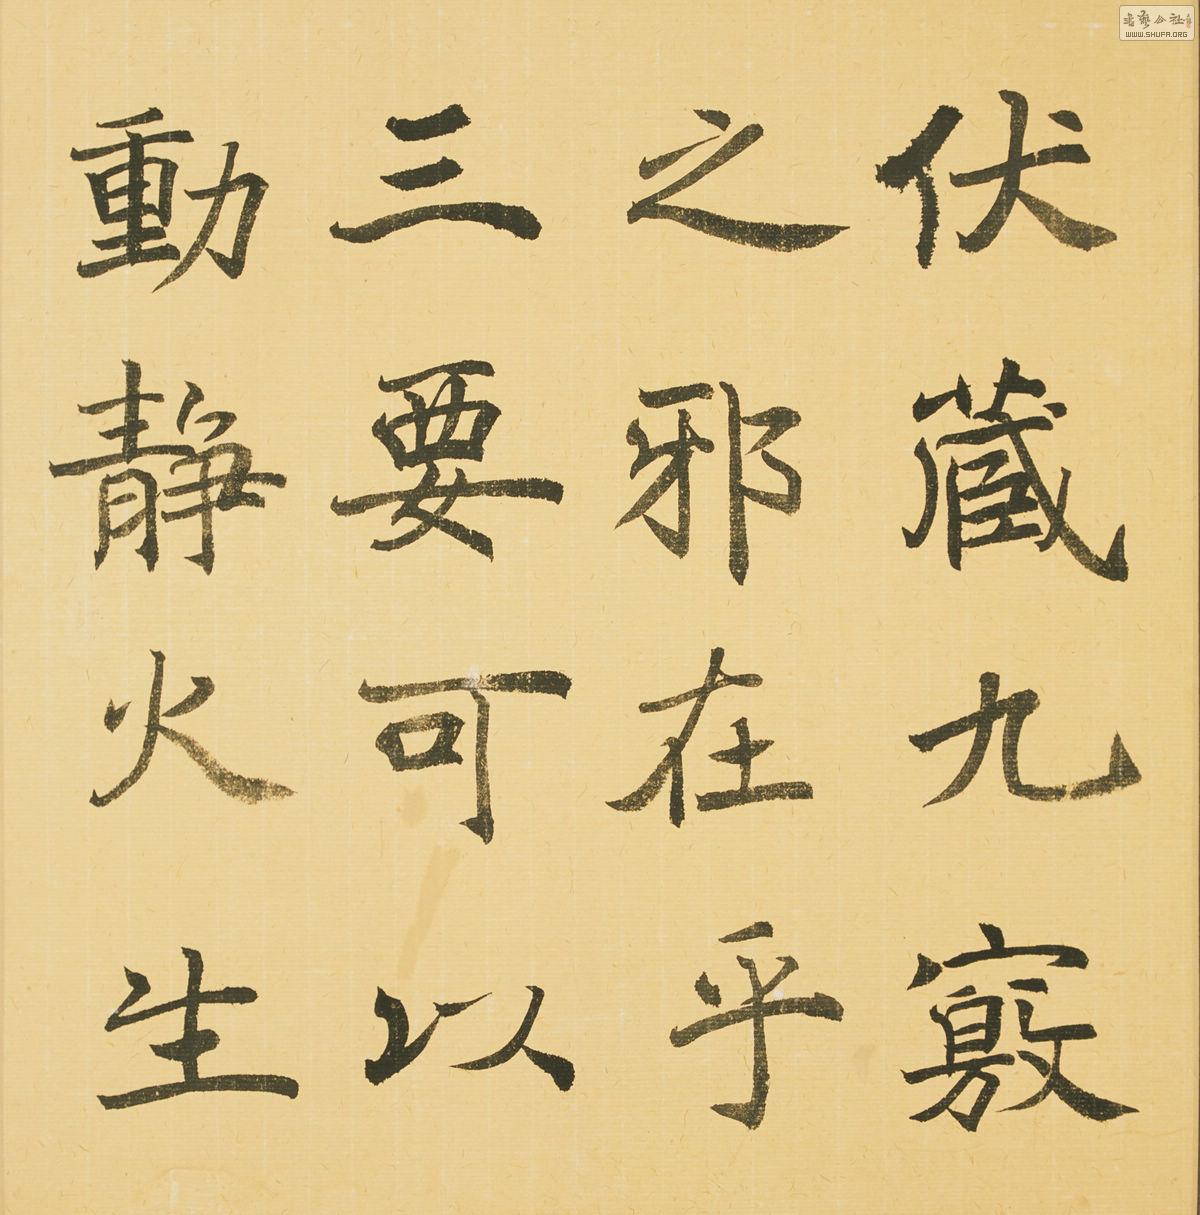 伏藏九竅
之邪在乎
三要可以
動靜火生
書藝公社
WWW.SHUFA.ORG